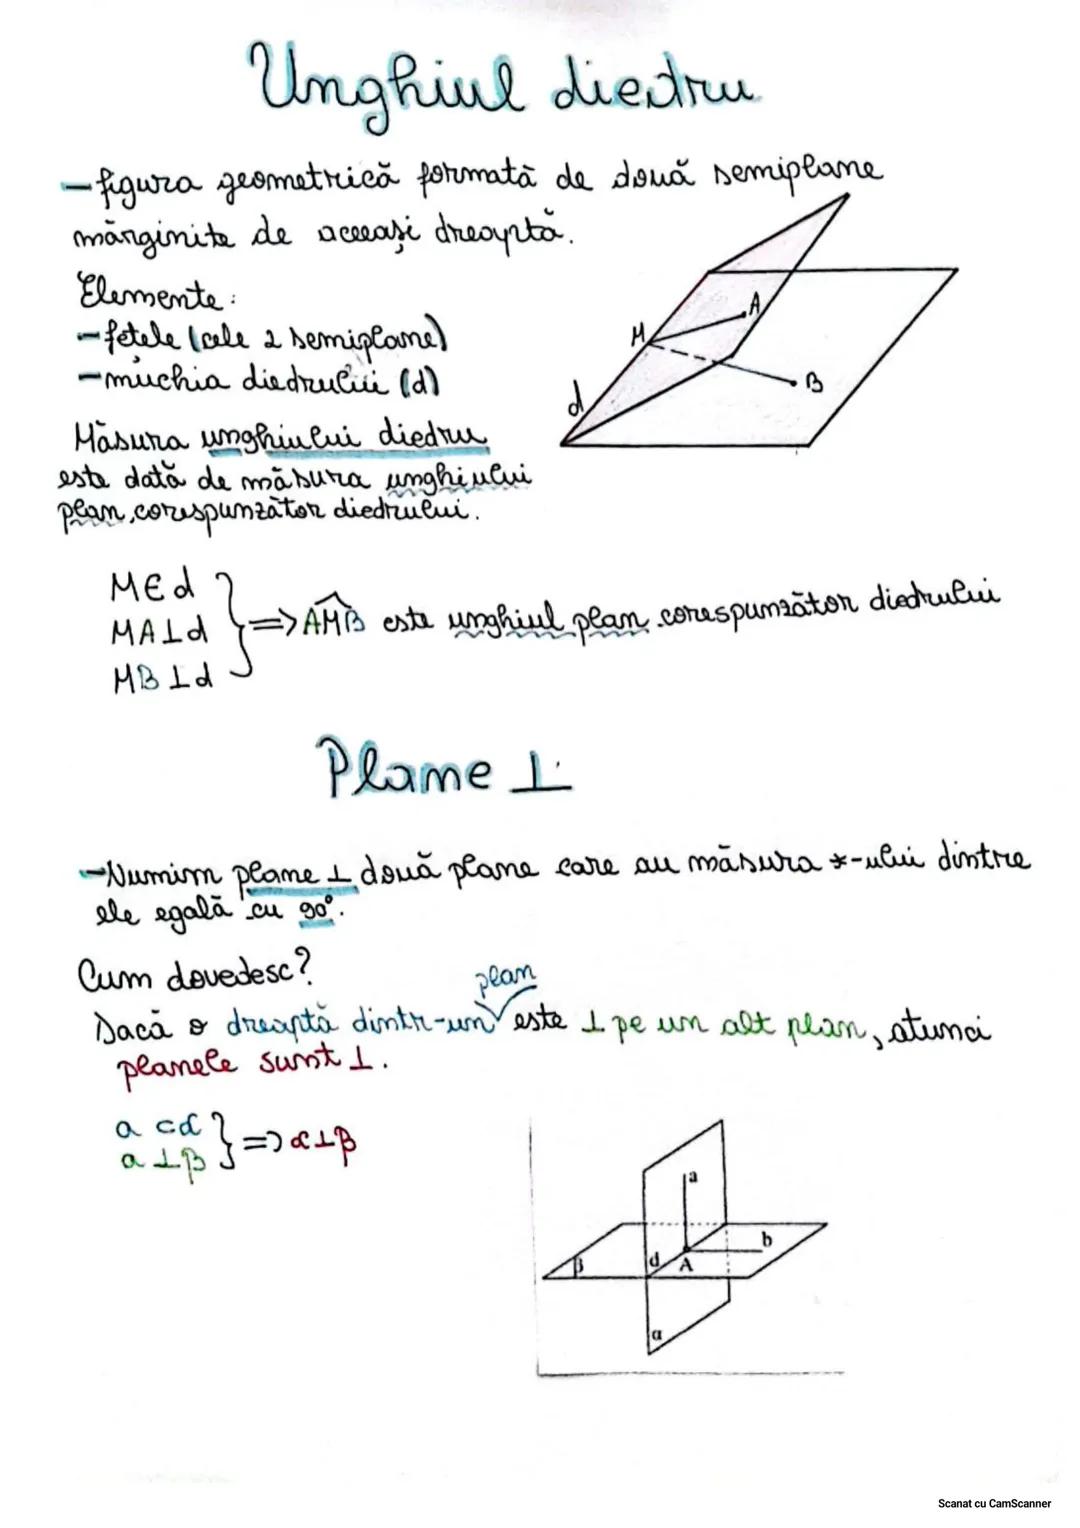 Unghiul diedru
-figura geometrică formată de două semiplane
mărginite de aceeași dreaptă.
Elemente:
-fețele (cele 2 semiplane)
-muchia diedrului (d)
Măsura unghiului diedru
este dată de măsura unghiului
plan corespunzător diedrului.
M
A
B
d
M∈d
MA⊥d
MB⊥d
} => AMB este unghiul plan corespunzător diedrului
Plane ⊥
-Numim plane ⊥ două plane care au măsura ∢-ului dintre
ele egală cu 90°.
Cum dovedesc?
plan
Dacă o dreaptă dintr-un este ⊥ pe un alt plan, atunci
planele sunt ⊥.
a ⊂ α
a ⊥ β
} => α ⊥ β
a
b
β
d
A
α
Scanat cu CamScanner